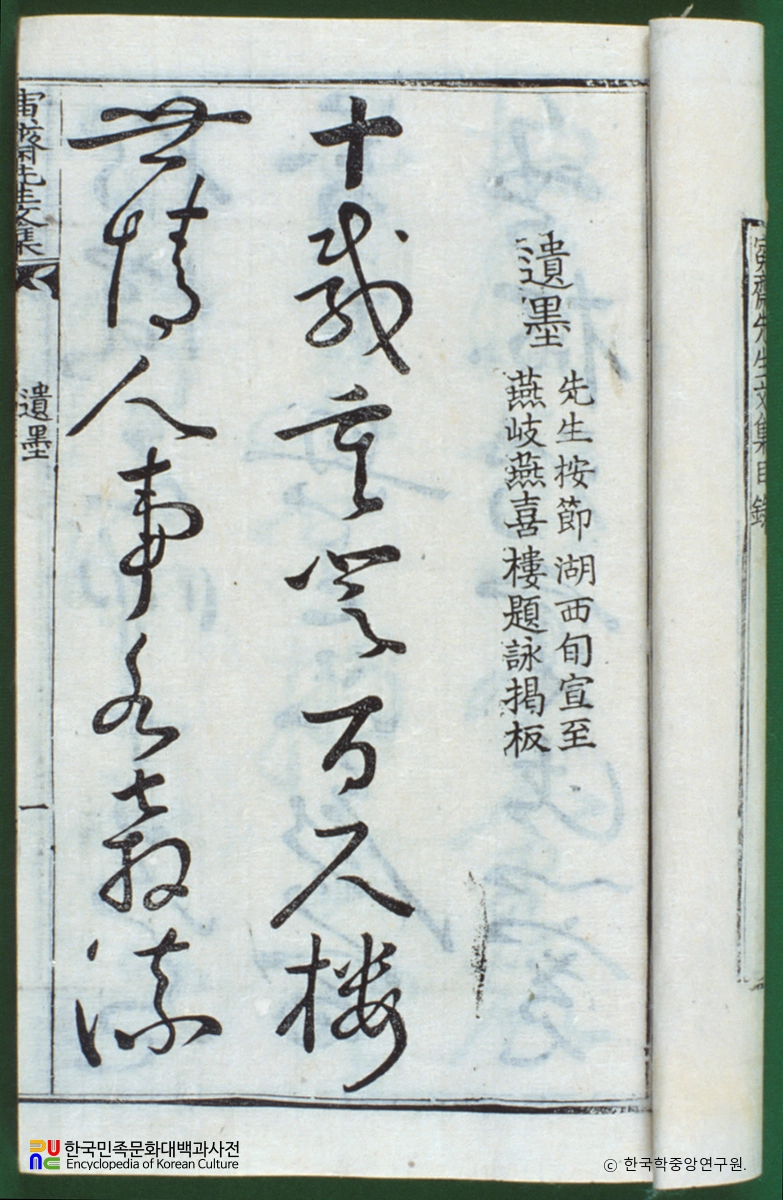 寅齋先生文集目錄
遺墨
先生按節湖西旬宣至
燕岐燕喜樓題詠揭板
十載重登百尺樓
世情人事 流
寅齋先生文集
遺墨
一
한국민족문화대백과사전
Encyclopedia of Korean Culture
ⓒ 한국학중앙연구원.